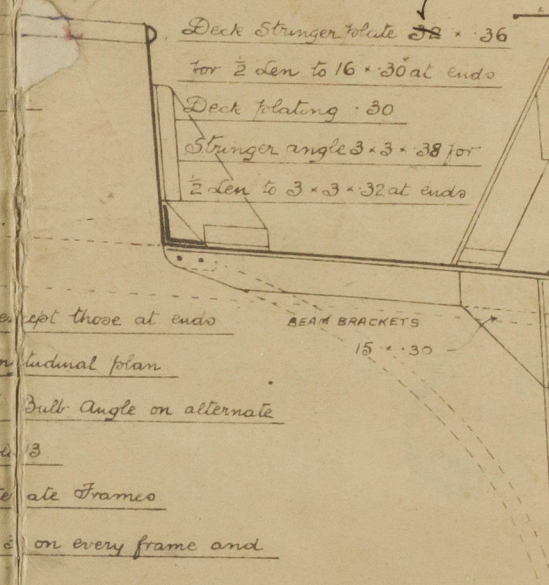 Deck Stringer Plate 32 × ·36
for ½ Len to 16 × ·30 at ends
Deck plating ·30
Stringer angle 3 × 3 × ·38 for
½ Len to 3 × 3 × ·32 at ends
ept those at ends
BEAM BRACKETS
15 × ·30
tudinal plan
Bulb Angle on alternate
13
ate Frames
on every frame and